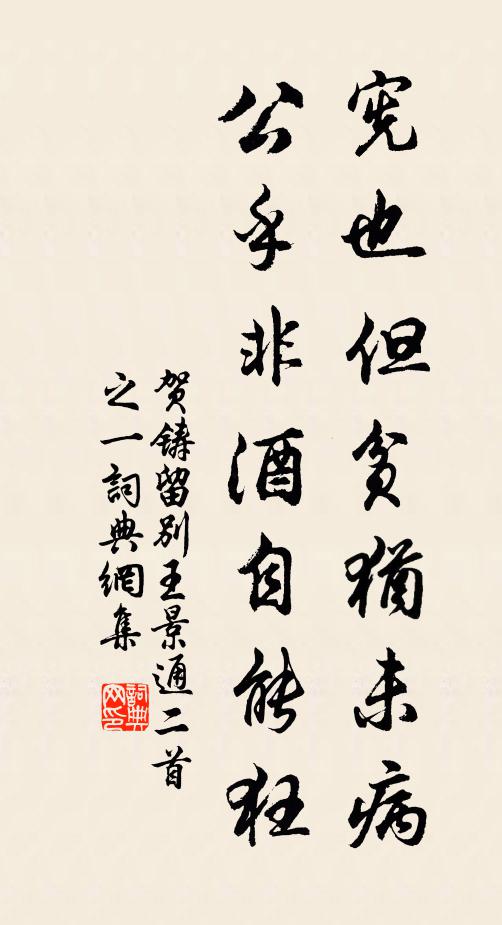 宪也但贫犹未病
公乎非酒自能狂
贺铸留别王景通二首
之一詞典網集
詞典網印